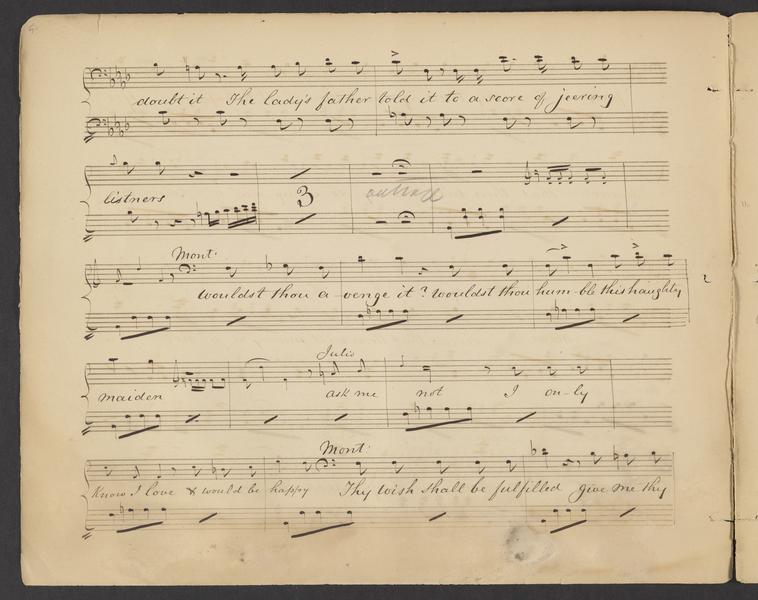 doubt it The lady's father told it to a score of jeering
listners
3
Mont.
wouldst thou a-venge it? wouldst thou hum-ble this haughty
Julio
maiden ask me not I on-ly
Mont.
Know I love & would be happy Thy wish shall be fulfilled give me thy